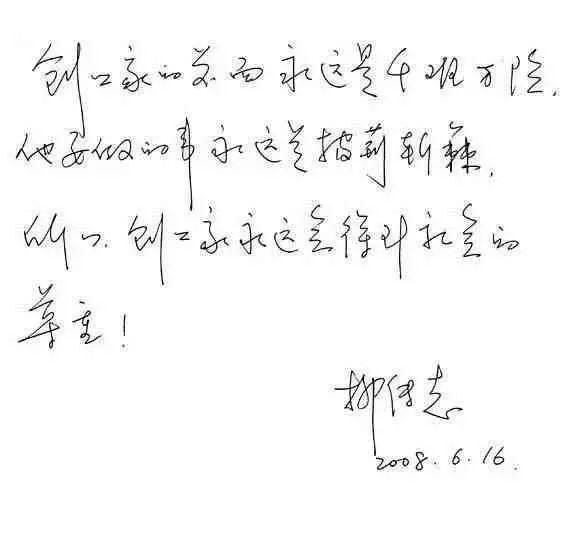 创业家的前面永远是千难万险，
他要做的事永远是披荆斩棘，
所以，创业家永远会得到社会的
尊重！
柳传志
2008.6.16.